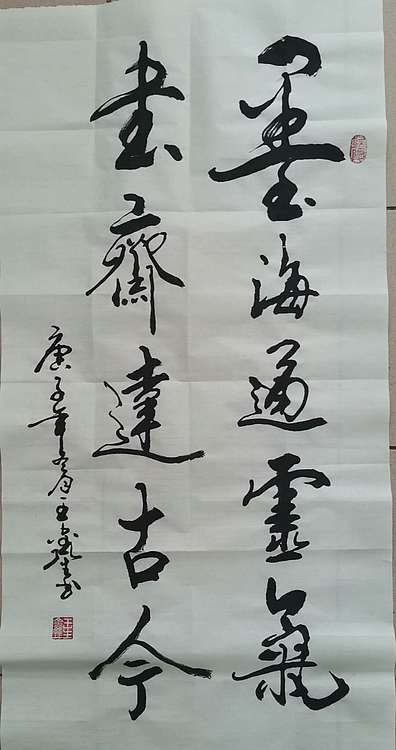 墨海通靈氣
書齋達古今
庚子年